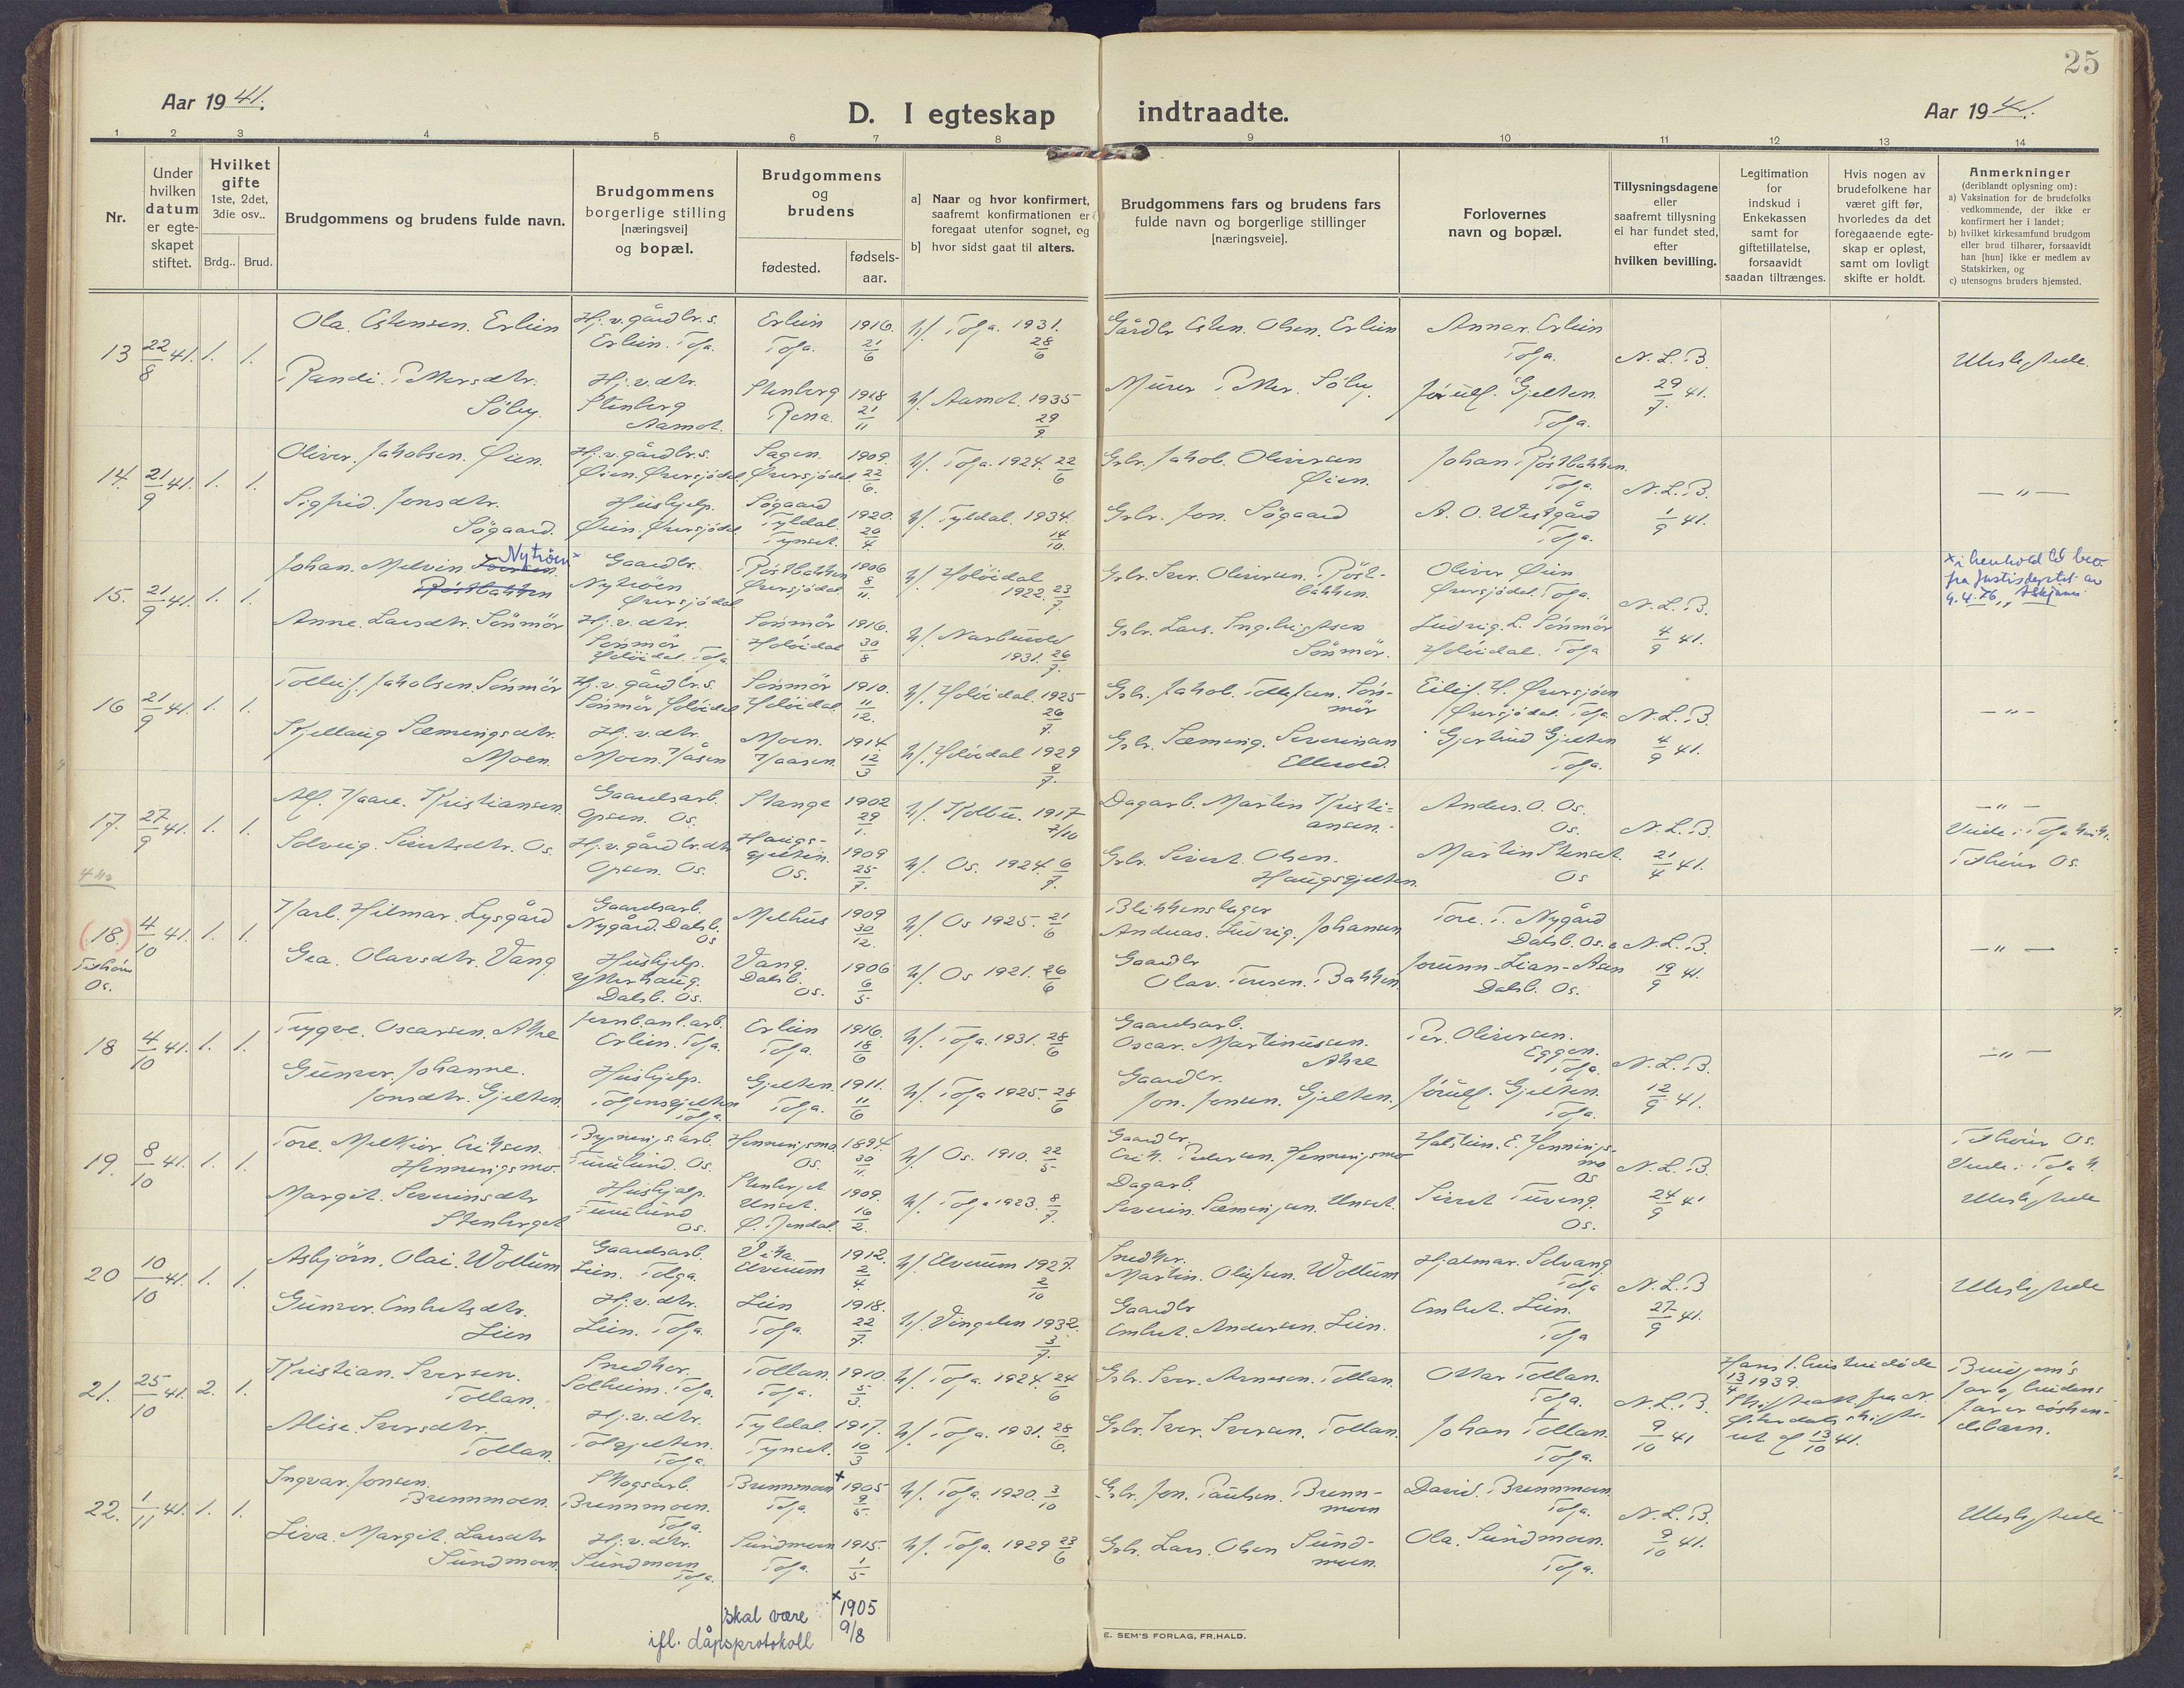 25
Aar 1941.
D. I egteskap indtraadte.
Aar 1941.
1 2 3 4 5 6 7 8 9 10 11 12 13 14
Nr.
Under hvilken datum er egte-skapet stiftet.
Hvilket gifte 1ste, 2det, 3die osv..
Brdg.. Brud.
Brudgommens og brudens fulde navn.
Brudgommens borgerlige stilling [næringsvei] og bopæl.
Brudgommens og brudens
fødested. fødsels-aar.
a] Naar og hvor konfirmert, saafremt konfirmationen er foregaat utenfor sognet, og
b] hvor sidst gaat til alters.
Brudgommens fars og brudens fars fulde navn og borgerlige stillinger [næringsveie].
Forlovernes navn og bopæl.
Tillysningsdagene eller saafremt tillysning ei har fundet sted, efter hvilken bevilling.
Legitimation for indskud i Enkekassen samt for giftetillatelse, forsaavidt saadan tiltrænges.
Hvis nogen av brudefolkene har været gift før, hvorledes da det foregaaende egte-skap er opløst, samt om lovligt skifte er holdt.
Anmerkninger (deriblandt oplysning om):
a) Vaksination for de brudefolks vedkommende, der ikke er konfirmert her i landet;
b) hvilket kirkesamfund brudgom eller brud tilhører, forsaavidt han [hun] ikke er medlem av Statskirken, og
c) utensogns bruders hjemsted.
13 22/8 41. 1. 1. Ola. Estensen. Erlien Hj. v. gårdbr.s. Erlien. Tolga. Erlien Tolga. 1916. 21/6 k/. Tolga. 1931. 28/6 Gårdbr Esten. Olsen. Erlien Annar. Erlien Tolga. N.L.B. 29/7 41.
Randi. Pettersdtr. Söby. Hj. v. dtr. Stenberg Aamot. Stenberg Rena. 1918 21/11 k/. Aamot. 1935 29/9 Murer Petter. Söby. Jörull. Gjelten. Tolga.
14. 21/9 41. 1. 1. Oliver. Jakobsen. Øien. Hj. v. gårdbr.s. Øien. Øversjödal. 1909. 22/6. k/. Tolga. 1924. 22/6 Grbr. Jakob. Oliversen Øien. Johan. Röstbakken. Tolga. N.L.B. 1/9 41. — " —
Sigfrid. Jonsdtr. Sögaard. Hushjelp. Øien. Øversjödal. Sögaard Tyldal. Tynset. 1920. 20/4. k/. Tyldal. 1934. 14/10. Grbr. Jon. Sögaard A. O. Westgård Tolga.
15. 21/9 41. 1. 1. Johan. Melvin Nytröen x Röstbakken Gaardbr. Nytröen Øversjödal Röstbakken Øversjödal 1906 8/11. k/. Holöidal 1922. 23/7. Grbr. Iver. Oliversen. Röst-bakken. Oliver Øien Øversjödal. Tolga. N.L.B. 4/9 41.
x i henhold til bev. fra Justisdeptet av 9.4.76,
Anne. Larsdtr. Sönmör Hj. v. dtr. Sönmör Holöidal. Tolga Sönmör Holöidal 1916. 30/8 k/. Narbuvold 1931. 26/7. Grbr. Lars. Ingebrigtsen Sönmör. Ludvig. L. Sönmör Holöidal. Tolga
16 21/9 41. 1. 1. Tollef. Jakobsen. Sönmör Hj. v. gårdbr.s. Sönmör Holöidal Sönmör Holöidal. 1910. 11/12. k/. Holöidal. 1925 26/7. Grbr. Jakob. Tollefsen. Sön-mör Eilif. H. Øversjöen Øversjödal. Tolga N.L.B. 4/9 41. — " —
Kjellaug Sæmingsdtr. Moen. Hj. v. dtr. Moen. Håsen Moen. Haasen. 1914. 12/3 k/. Holöidal 1929 9/7. Grbr. Sæming. Severinsen Ellevold. Gjertrud Gjelten Tolga.
17. 27/9 41. 1. 1. Alf. Haare. Kristiansen. Gaardsarb. Opsen. Os. Stange 1902 29/1. k/. Kolbu. 1917 7/10 Dagarb. Martin Kristi-ansen. Anders. O. Os. Os. N.L.B. 21/4 41. — " —
Solveig. Sivertsdtr. Os. Hj. v. gårdbr. dtr. Opsen. Os. Haugs-gjelten. Os. 1909 25/7. k/. Os. 1924. 6/7. Grbr. Sivert. Olsen. Haugsgjelten. Martin Stenset. Os Viede i Tolga kirke. Tilhörer Os.
(18.) Tilhörer Os. 4/10 41. 1. 1. Harl. Hilmar. Lysgård Gaardsarb. Nygård. Dalsb. Os Melhus 1909 30/12. k/. Os 1925. 21/6 Blikkenslager Andreas. Ludvig. Johansen Tore. T. Nygård Dalsb. Os. N.L.B. 19/9 41. — " —
Gea. Olavsdtr. Vang Hushjelp. Ytterhaug. Dalsb. Os. Vang. Dalsb. Os. 1906 6/5. k/. Os 1921. 26/6 Gaardbr Olav. Toresen. Bakken. Jorunn Lian-Aasen Dalsb. Os.
18 4/10 41. 1. 1. Trygve. Oscarsen. Akre Jernb.anl.arb. Erlien. Tolga. Erlien Tolga. 1916. 18/6 k/. Tolga. 1931. 28/6 Gaardsarb. Oscar. Martinusen. Akre Per. Oliversen. Eggen. Tolga. N.L.B. 12/9 41. — " —
Gunvor. Johanne. Jonsdtr. Gjelten. Hushjelp. Tolgensgjelten Tolga. Gjelten. Tolga. 1911. 11/6 k/. Tolga 1925. 28/6 Gaardbr. Jon. Jonsen. Gjelten. Jörull. Gjelten. Tolga.
19. 8/10 41. 1. 1. Tore. Melkior. Eriksen. Henningsmo. Bygnings.arb. Furulund. Os. Henningsmo. Os. 1894. 30/11. k/. Os. 1910. 22/5. Gaardbr. Erik. Pedersen. Henningsmo Halstein. E. Hennings-mo Os N.L.B. 24/9 41 Tilhörer Os. Viede i Tolga k.
Margit. Severinsdtr Stenberget Hushjelp. Furulund Os. Stenberget Unset. Ø. Rendal. 1909. 16/2. k/. Tolga 1923. 8/7. Dagarb. Severin. Sæmingsen. Unset. Sivert Tuveng. Os.
20 10/10 41. 1. 1. Asbjörn. Olai. Wollum Gaardsarb. Lien. Tolga. Elverum 1912. 2/4. k/. Elverum 1927. 2/10 Snedker. Martin. Olufsen. Wollum Hjalmar. Solvang Tolga N.L.B 27/9 41.
Gunvor. Embretsdtr. Lien Hj. v. dtr. Lien. Tolga. Lien Tolga 1918. 22/7. k/. Vingelen 1932. 3/7. Gaardbr Embret. Andersen. Lien. Embret. Lien. Tolga
21. 25/10 41. 2. 1. Kristian. Iversen. Tollan. Snedker. Solheim. Tolga. Tollan. Tolga. 1910. 5/3. k/. Tolga. 1924. 24/6 Grbr. Iver. Arnesen. Tollan. Ottar Tollan. Tolga. N.L.B. 9/10 41 Hans 1. hustru döde 13/4 1939. Skifteatt. fra N. Österdals skifte-rett af 13/10 41. Brudgom's far og brudens far er söskende-barn.
Alise. Iversdtr. Tollan. Hj. v. dtr. Tolgjelten. Tolga. Tyldal. Tynset. 1917. 10/3 k/. Tolga. 1931. 28/6. Grbr. Iver. Iversen. Tollan. Johan Tollan. Tolga.
22. 1/11 41. 1. 1. Ingvar. Jonsen. Brennmoen. Skogsarb. Brennmoen. Tolga. Brennmoen x Tolga 1905 9/5. k/. Tolga. 1920. 3/10 Grbr. Jon. Paulsen. Brenn-moen David. Brennmoen. Tolga. N.L.B. 9/10 41.
Liva. Margit. Larsdtr Sundmoen. Hj. v. dtr. Sundmoen Tolga. Sundmoen Tolga. 1915 1/5 k/. Tolga. 1929 23/6 Grbr. Lars. Olsen Sund-moen. Ola. Sundmoen. Tolga.
skal være ifl. dåpsprotokoll x 1905 9/8
E. SEM'S FORLAG, FR.HALD.